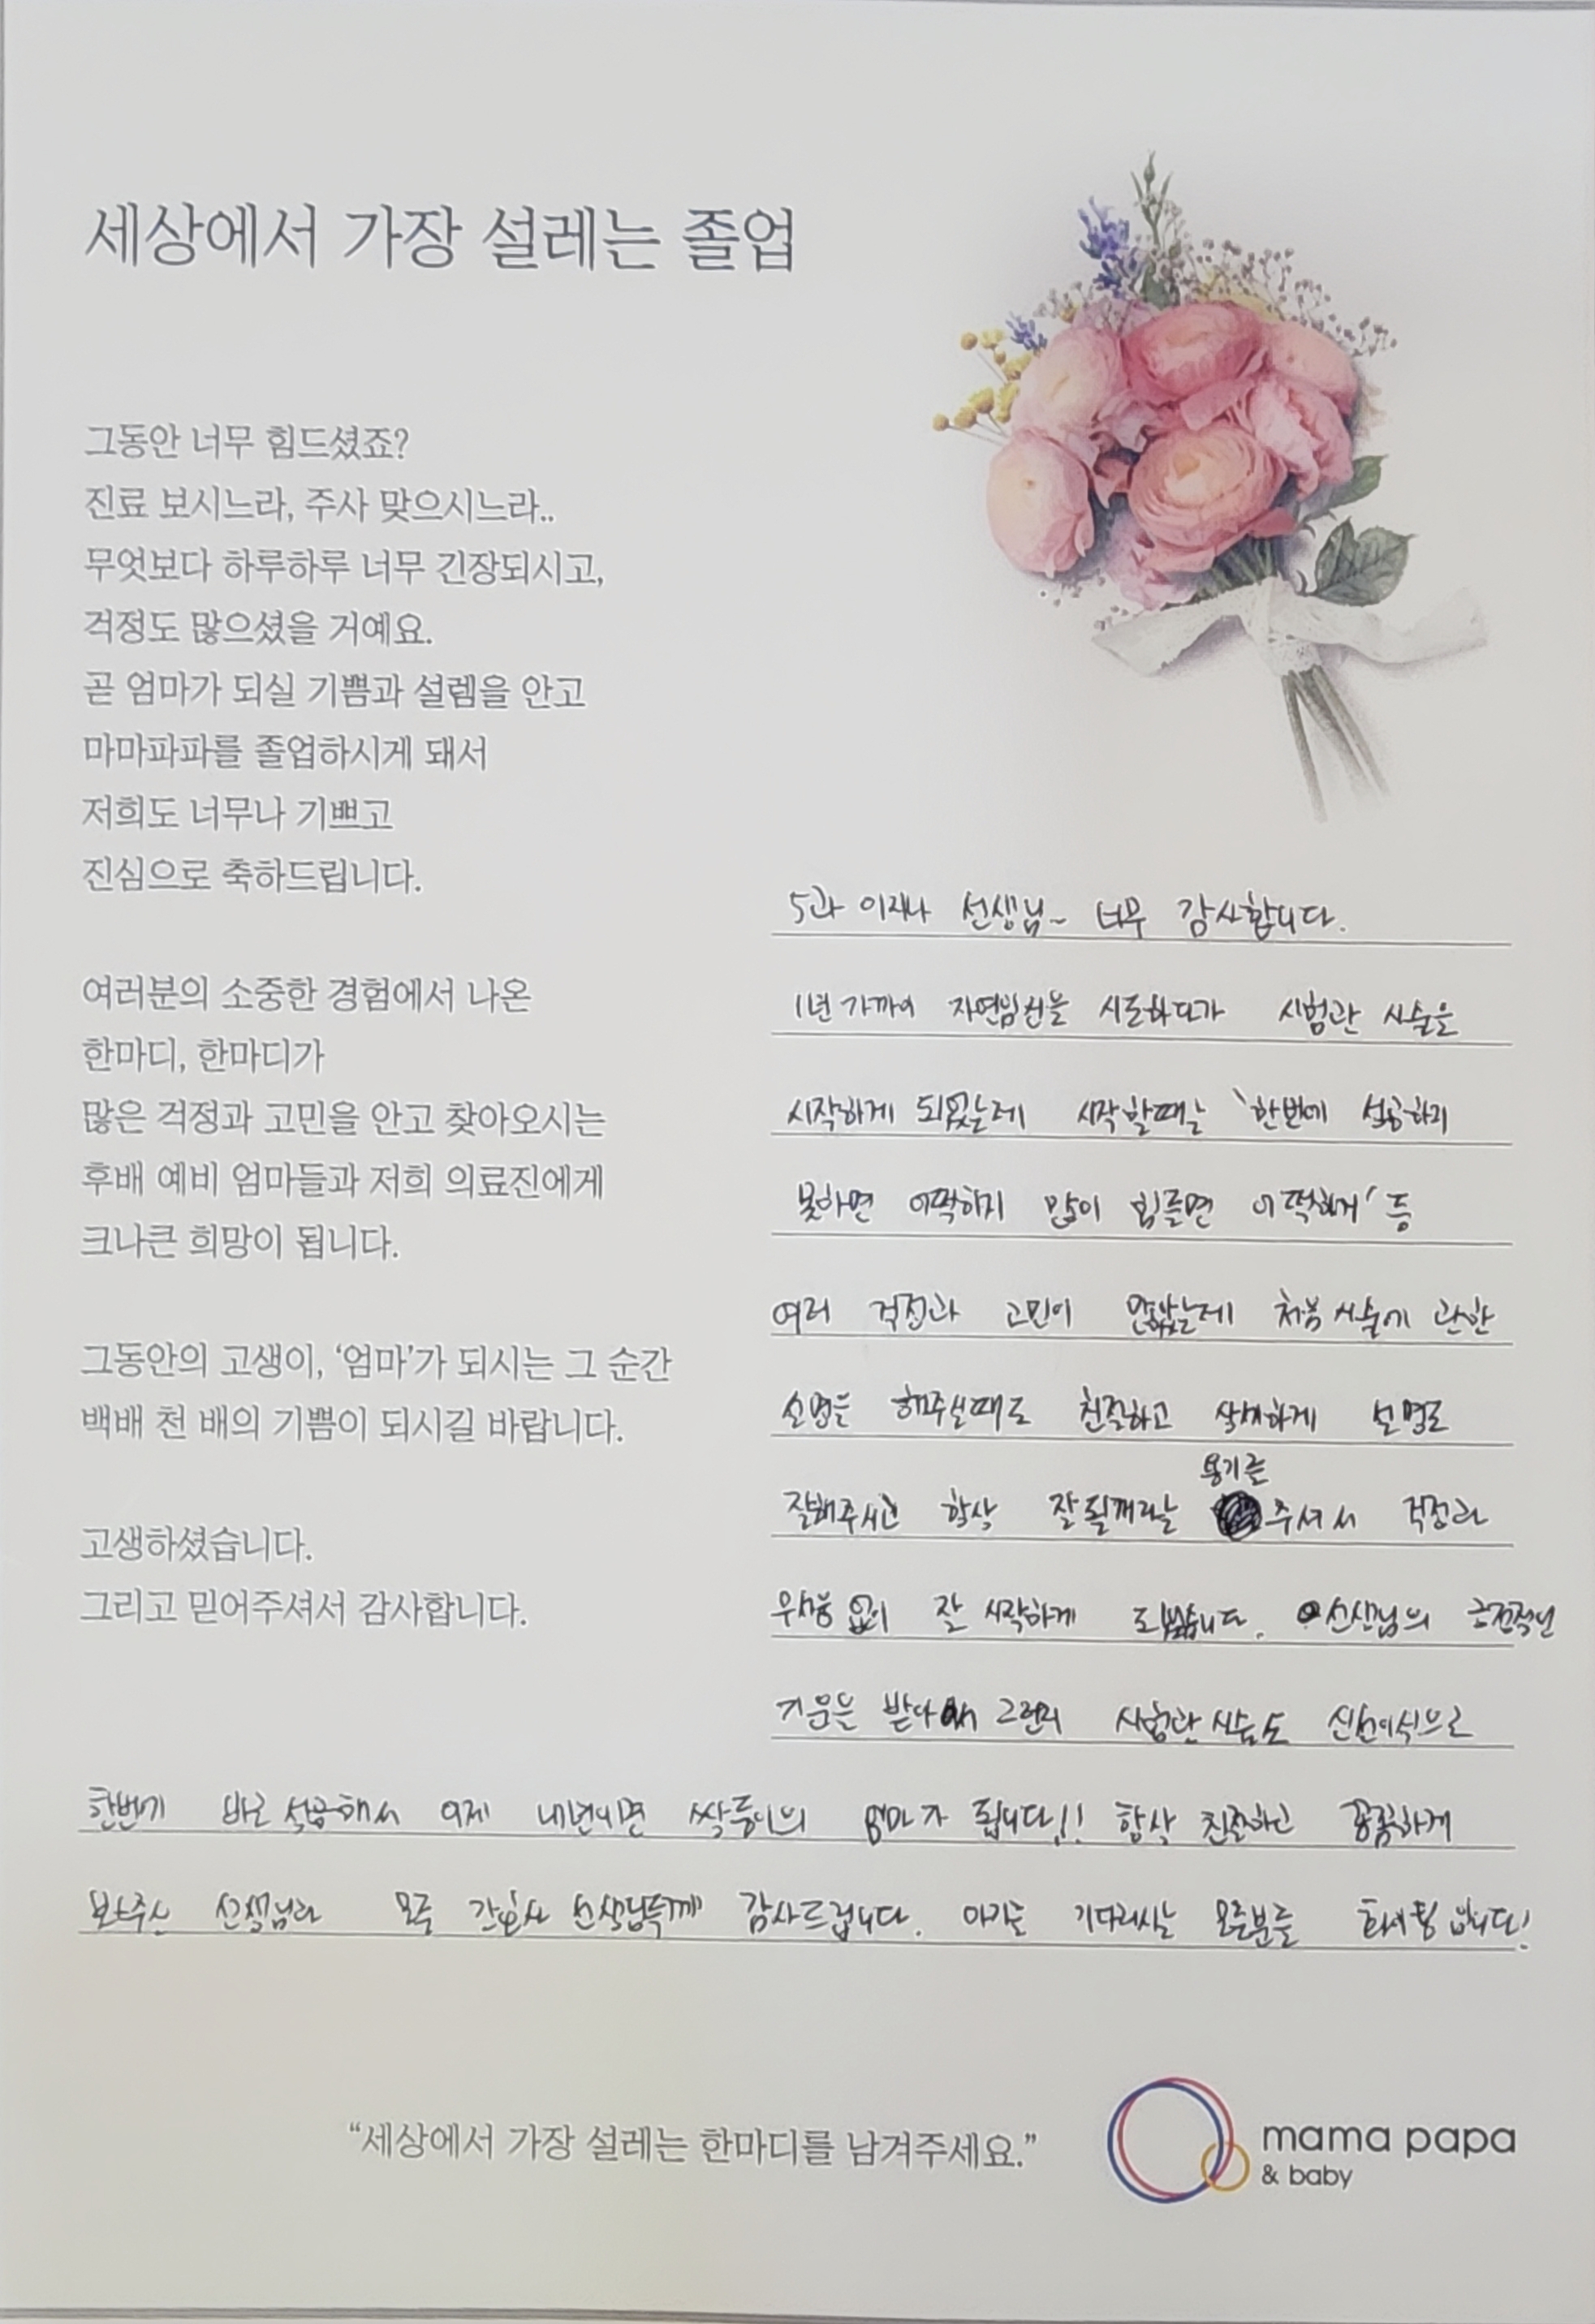 세상에서 가장 설레는 졸업
그동안 너무 힘드셨죠?
진료 보시느라, 주사 맞으시느라..
무엇보다 하루하루 너무 긴장되시고,
걱정도 많으셨을 거예요.
곧 엄마가 되실 기쁨과 설렘을 안고
마마파파를 졸업하시게 돼서
저희도 너무나 기쁘고
진심으로 축하드립니다.
여러분의 소중한 경험에서 나온
한마디, 한마디가
많은 걱정과 고민을 안고 찾아오시는
후배 예비 엄마들과 저희 의료진에게
크나큰 희망이 됩니다.
그동안의 고생이, ‘엄마’가 되시는 그 순간
백배 천 배의 기쁨이 되시길 바랍니다.
고생하셨습니다.
그리고 믿어주셔서 감사합니다.
5과 이재나 선생님~ 너무 감사합니다.
1년 가까이 자연임신을 시도하다가 시험관 시술을
시작하게 되었는데 시작할때는 '한번에 성공하지
못하면 어떡하지 많이 힘들면 어떡하지' 등
여러 걱정과 고민이 많았는데 처음 시술에 관한
설명을 해주실때도 친절하고 상세하게 설명도
잘해주시고 항상 잘될꺼라는 용기를 주셔서 걱정과
우울 없이 잘 시작하게 되었습니다. 선생님의 긍정적인
기운을 받아서 그런지 시험관 시술도 신선이식으로
한번에 바로 성공해서 이제 내년이면 쌍둥이의 엄마가 됩니다!! 항상 친절하고 꼼꼼하게
봐주신 선생님과 모든 간호사 선생님들께 감사드립니다. 아기를 기다리시는 모든분들 화이팅 입니다!
“세상에서 가장 설레는 한마디를 남겨주세요.”
mama papa
& baby